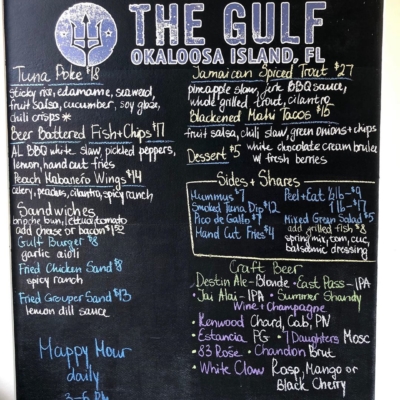 THE GULF
OKALOOSA ISLAND, FL
Tuna Poke $18
sticky rice, edamame, seaweed,
fruit salsa, cucumber, soy glaze,
chili crisps *
Beer Battered Fish+Chips $17
AL BBQ white slaw, pickled peppers,
lemon, hand cut fries
Peach Habanero Wings $14
celery, peaches, cilantro, spicy ranch
Sandwiches
brioche bun, lettuce, tomato
add cheese or bacon $1.50
Gulf Burger $8
garlic aioli
Fried Chicken Sand $8
spicy ranch
Fried Grouper Sand $13
lemon dill sauce
Happy Hour
daily
3-6 PM
Jamaican Spiced Trout $27
pineapple slaw, jerk BBQ sauce,
whole grilled trout, cilantro
Blackened Mahi Tacos $16
fruit salsa, chili slaw, green onions + chips
Dessert $5 white chocolate creme brulee
w/ fresh berries
Sides + Shares
Hummus $7
Smoked Tuna Dip $12
Pico de Gallo $7
Hand Cut Fries $4
Peel+Eat 1/2lb-$9
1 lb-$17
Mixed Green Salad $5
add grilled fish $8
spring mix, tom, cuc,
balsamic dressing
Craft Beer
Destin Ale-Blonde • East Pass-IPA
• Jai Alai-IPA • Summer Shandy
Wine + Champagne
• Kenwood Chard, Cab, PN
• Estancia PG • 7 Daughters Mosc
• 83 Rose • Chandon Brut
• White Claw Rasp, Mango or
Black Cherry